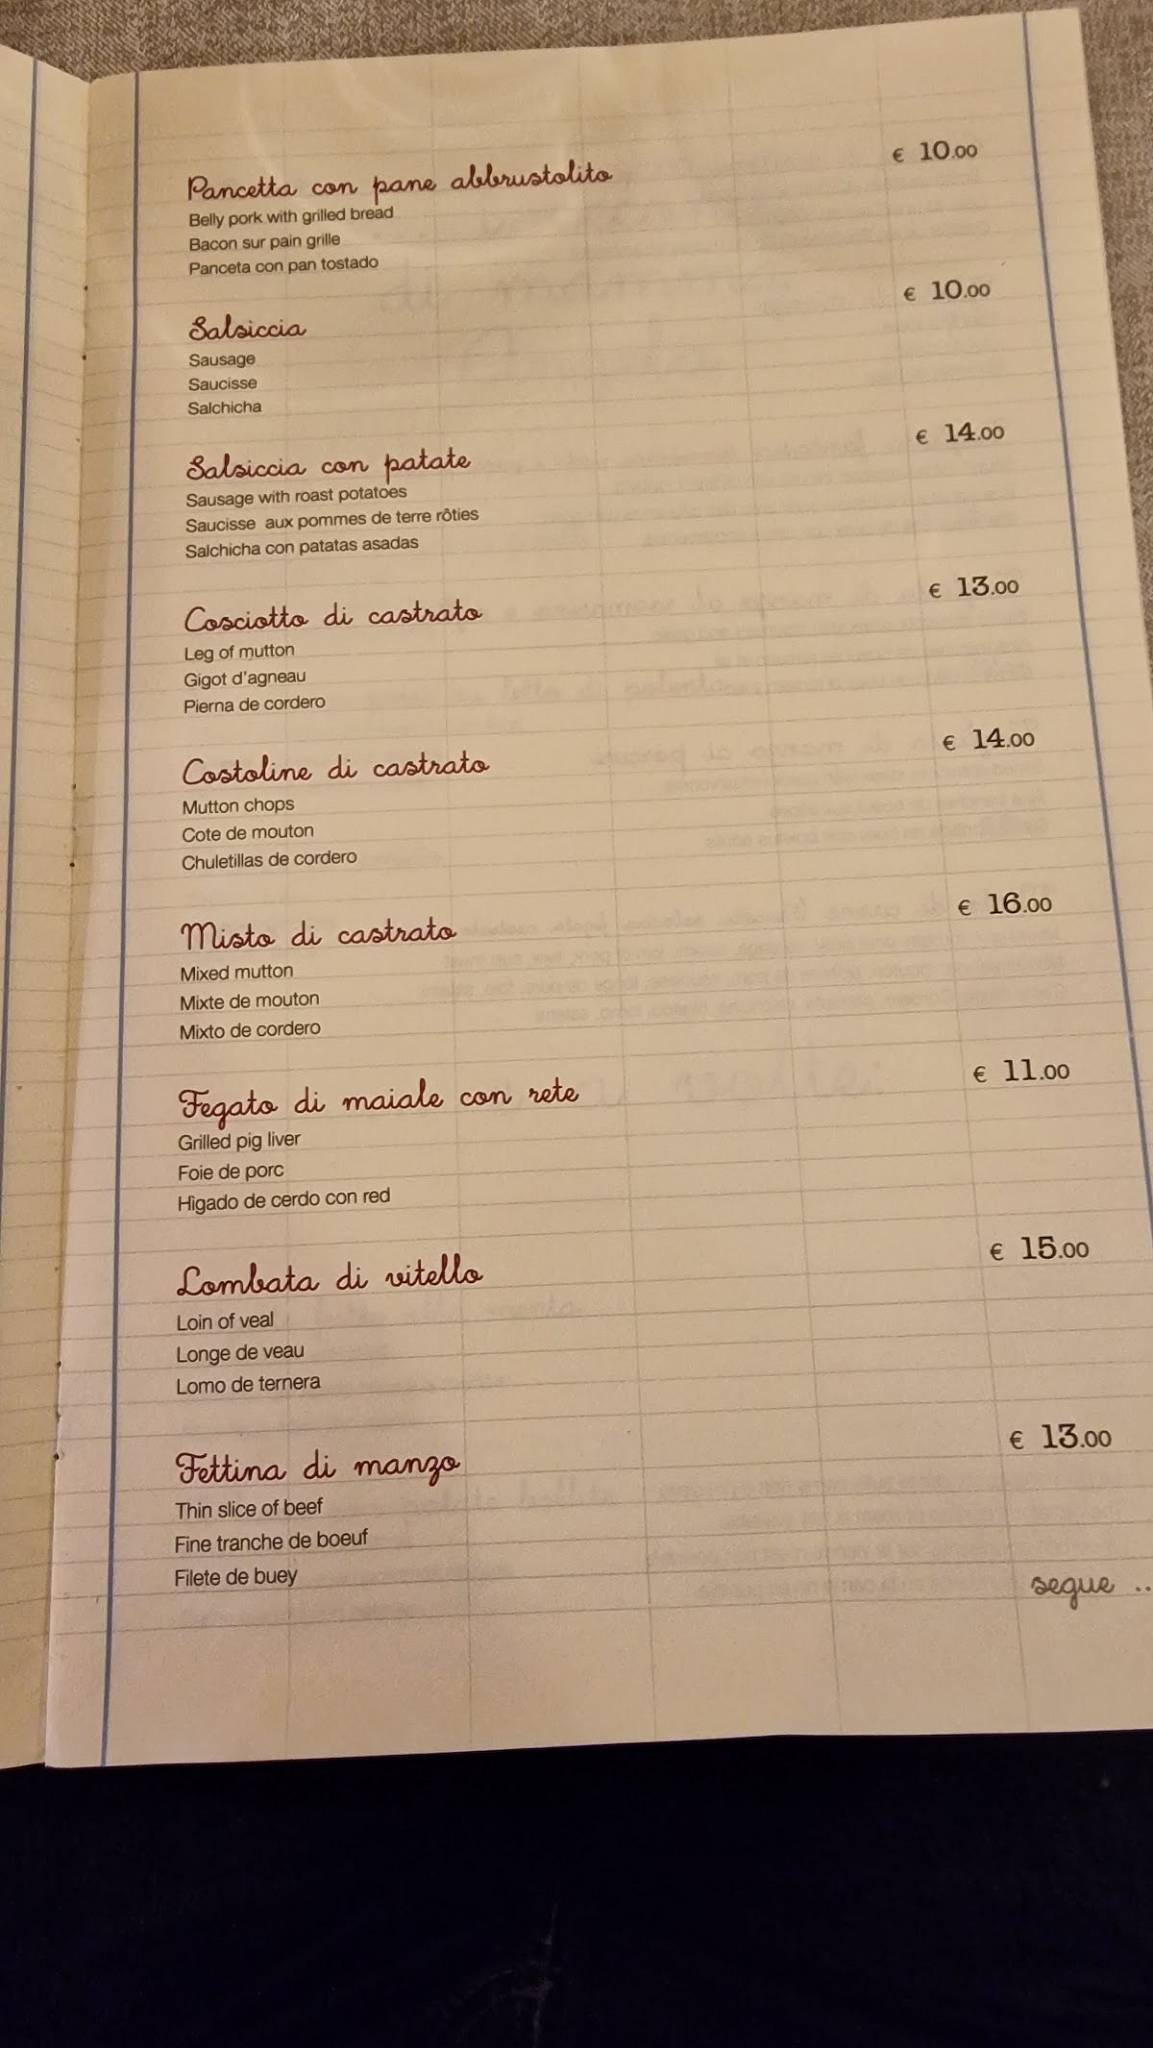 Pancetta con pane abbrustolito € 10.00
Belly pork with grilled bread
Bacon sur pain grille
Panceta con pan tostado
Salsiccia € 10.00
Sausage
Saucisse
Salchicha
Salsiccia con patate € 14.00
Sausage with roast potatoes
Saucisse aux pommes de terre rôties
Salchicha con patatas asadas
Cosciotto di castrato € 13.00
Leg of mutton
Gigot d'agneau
Pierna de cordero
Costoline di castrato € 14.00
Mutton chops
Cote de mouton
Chuletillas de cordero
Misto di castrato € 16.00
Mixed mutton
Mixte de mouton
Mixto de cordero
Fegato di maiale con rete € 11.00
Grilled pig liver
Foie de porc
Hìgado de cerdo con red
Lombata di vitello € 15.00
Loin of veal
Longe de veau
Lomo de ternera
Fettina di manzo € 13.00
Thin slice of beef
Fine tranche de boeuf
Filete de buey
segue ..